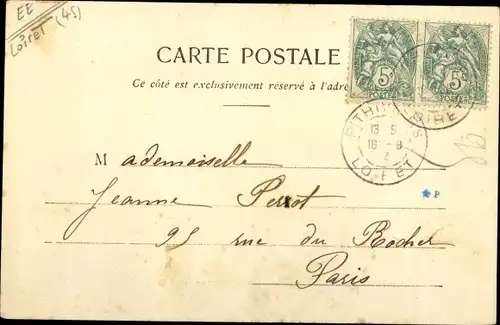 EE
Loiret (45)
CARTE POSTALE
Ce côté est exclusivement réservé à l'adre
5c 5c
POSTES
PITHIVIERS
13 5
16 - 9
LOIRET
Mademoiselle
Jeanne Perrot
95 rue du Rocher
Paris
P